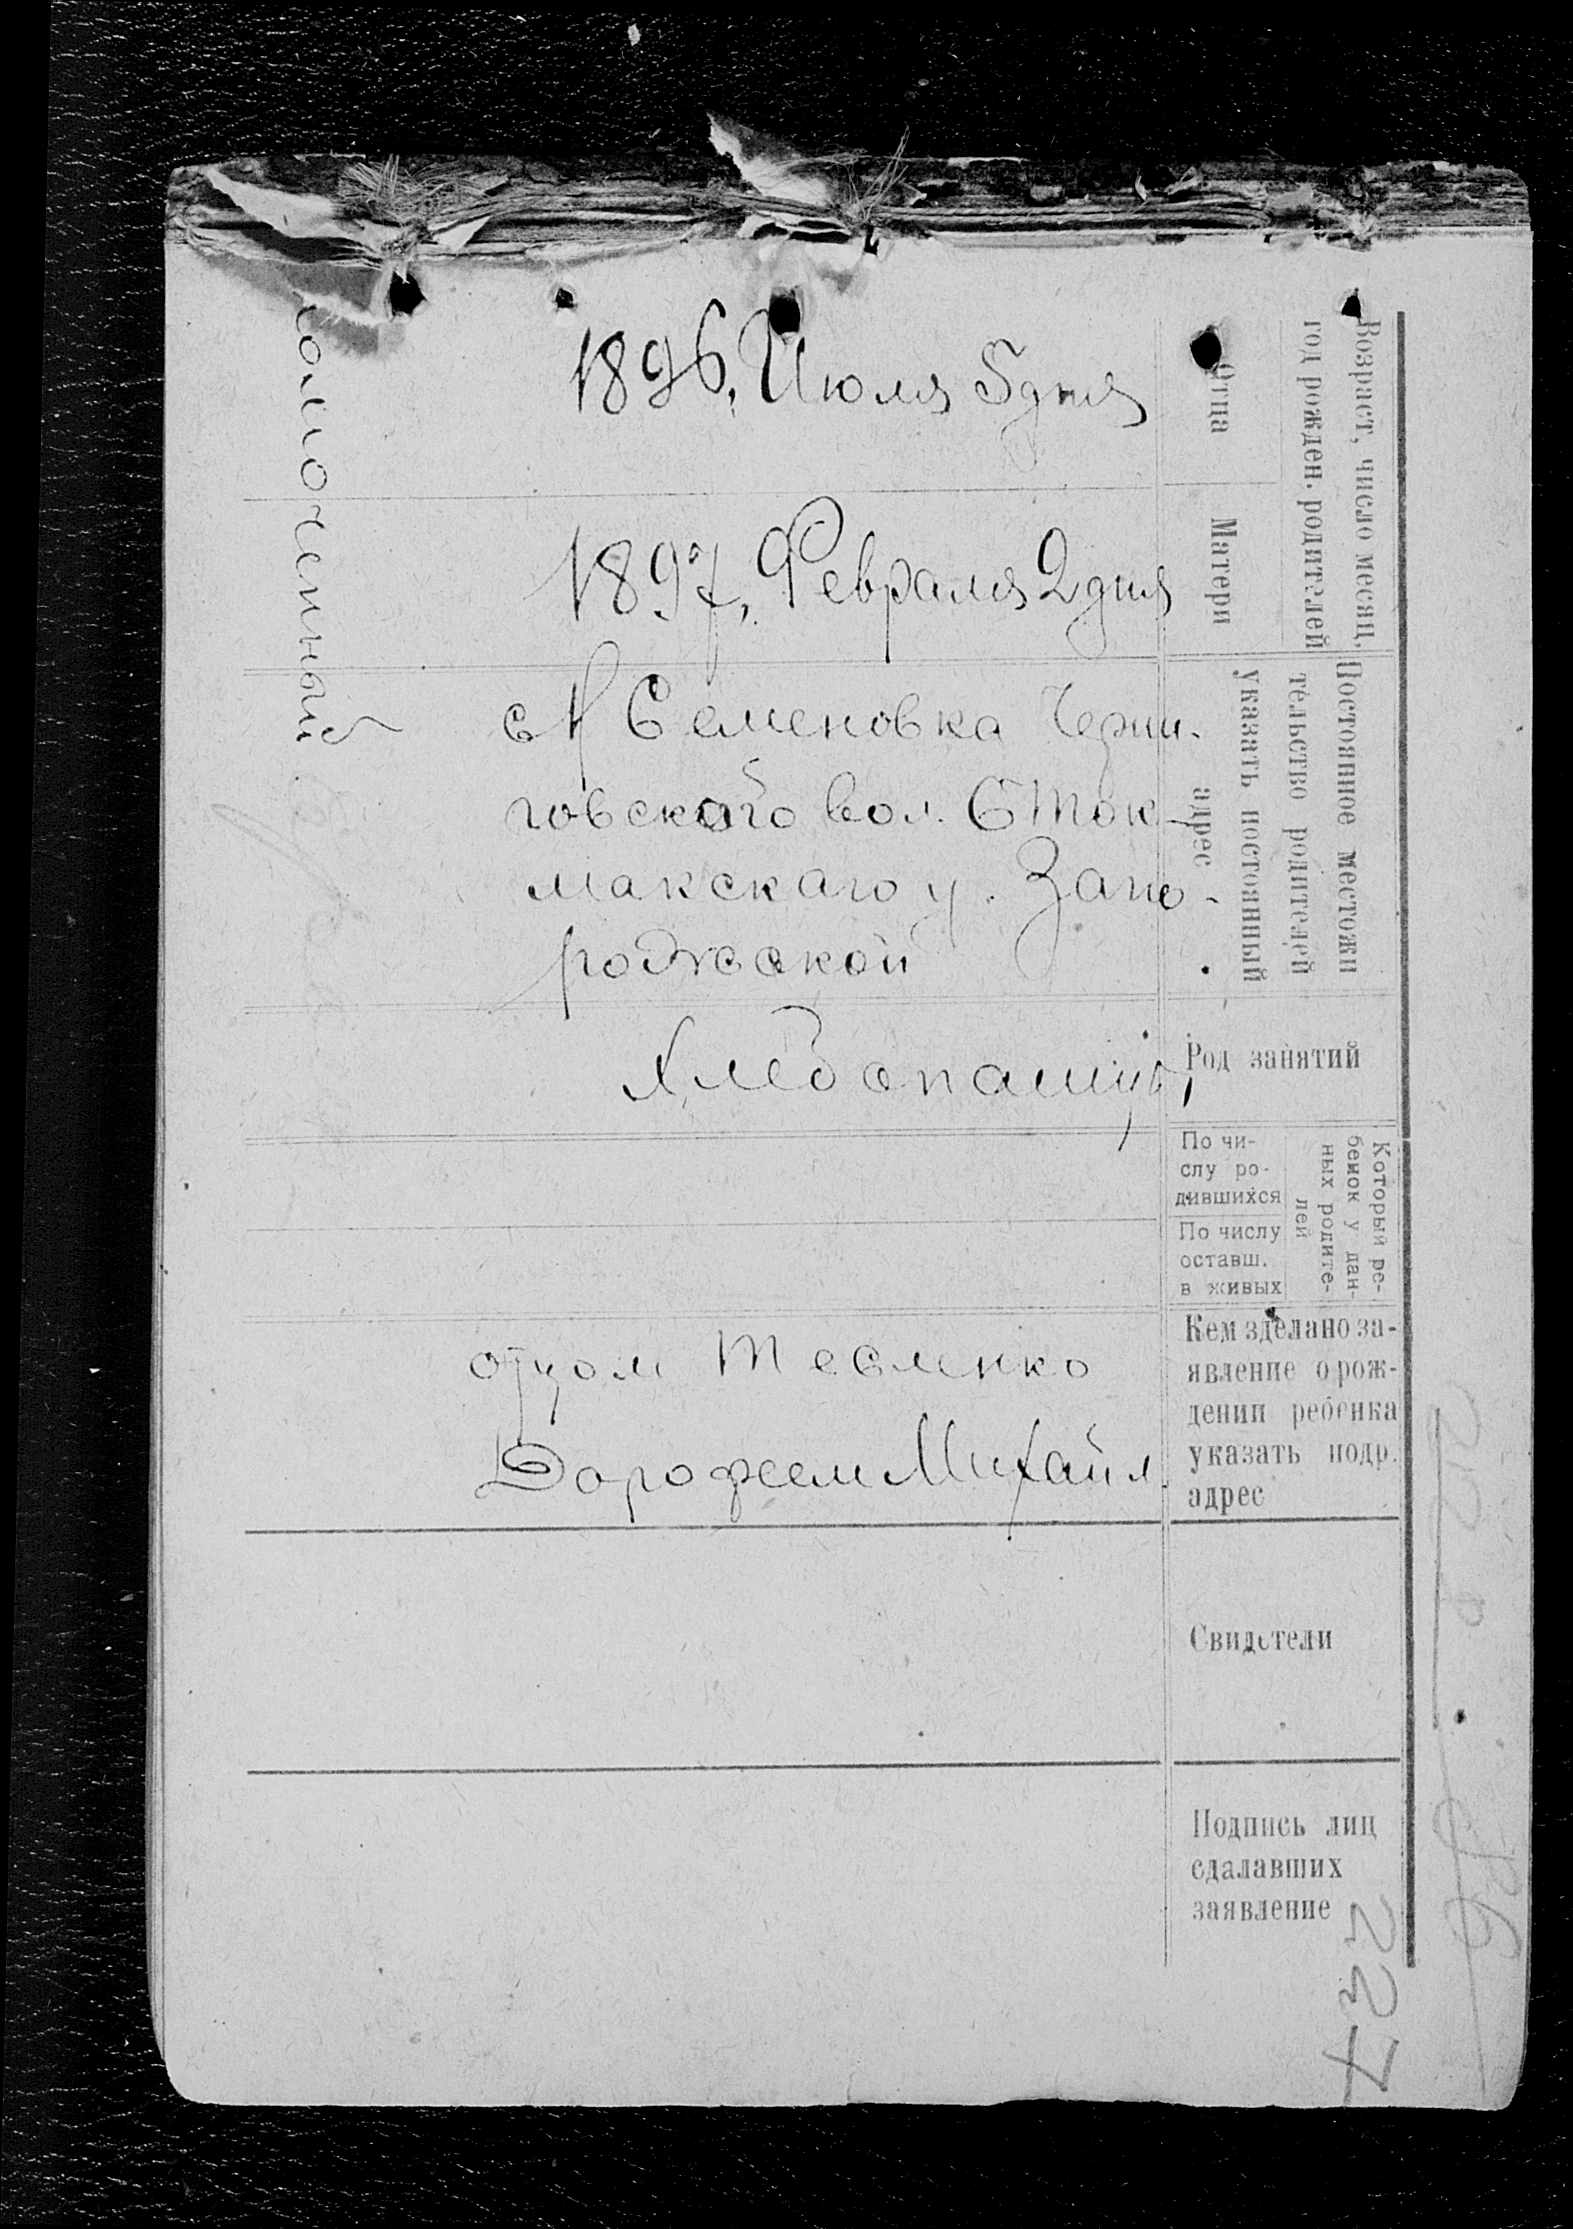 Возраст, число месяц,
год рожден. родителей
Отца
1896, Июля 5 дня
Матери
1897, Февраля 2 дня
Постоянное местожи
тельство родителей
указать постоянный
адрес
с Н Семеновка Черни-
говского вол. Б Ток-
макскаго у. Запо-
рожской
Род занятий
Хлебопашцы
Который ре-
бенок у дан-
ных родите-
лей
По чи-
слу ро-
дившихся
По числу
оставш.
в живых
Кем зделано за-
явление о рож-
дении ребенка
указать подр.
адрес
отцом Тесленко
Дорофеем Михайл.
Свидетели
Подпись лиц
сдалавших
заявление
олмоченный
237